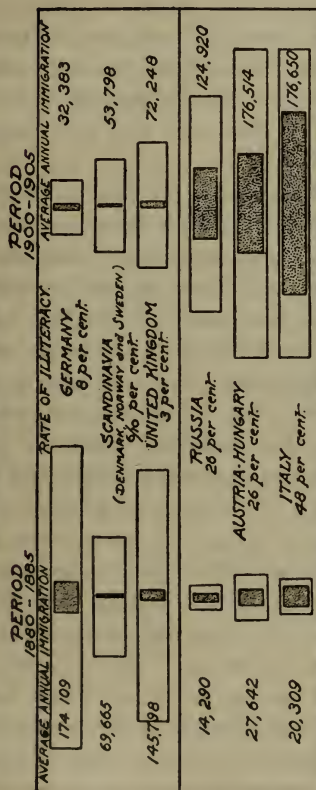 PERIOD
1880-1885
PERIOD
1900-1905
AVERAGE ANNUAL IMMIGRATION
RATE OF ILLITERACY.
AVERAGE ANNUAL IMMIGRATION
174 109
GERMANY
8 per cent.
32,383
69,665
SCANDINAVIA
(DENMARK, NORWAY and SWEDEN)
6/10 per cent.
53,798
145,798
UNITED KINGDOM
3 per cent.
72,248
14,290
RUSSIA
26 per cent.
124,920
27,642
AUSTRIA-HUNGARY
26 per cent.
176,514
20,309
ITALY
48 per cent.
176,650